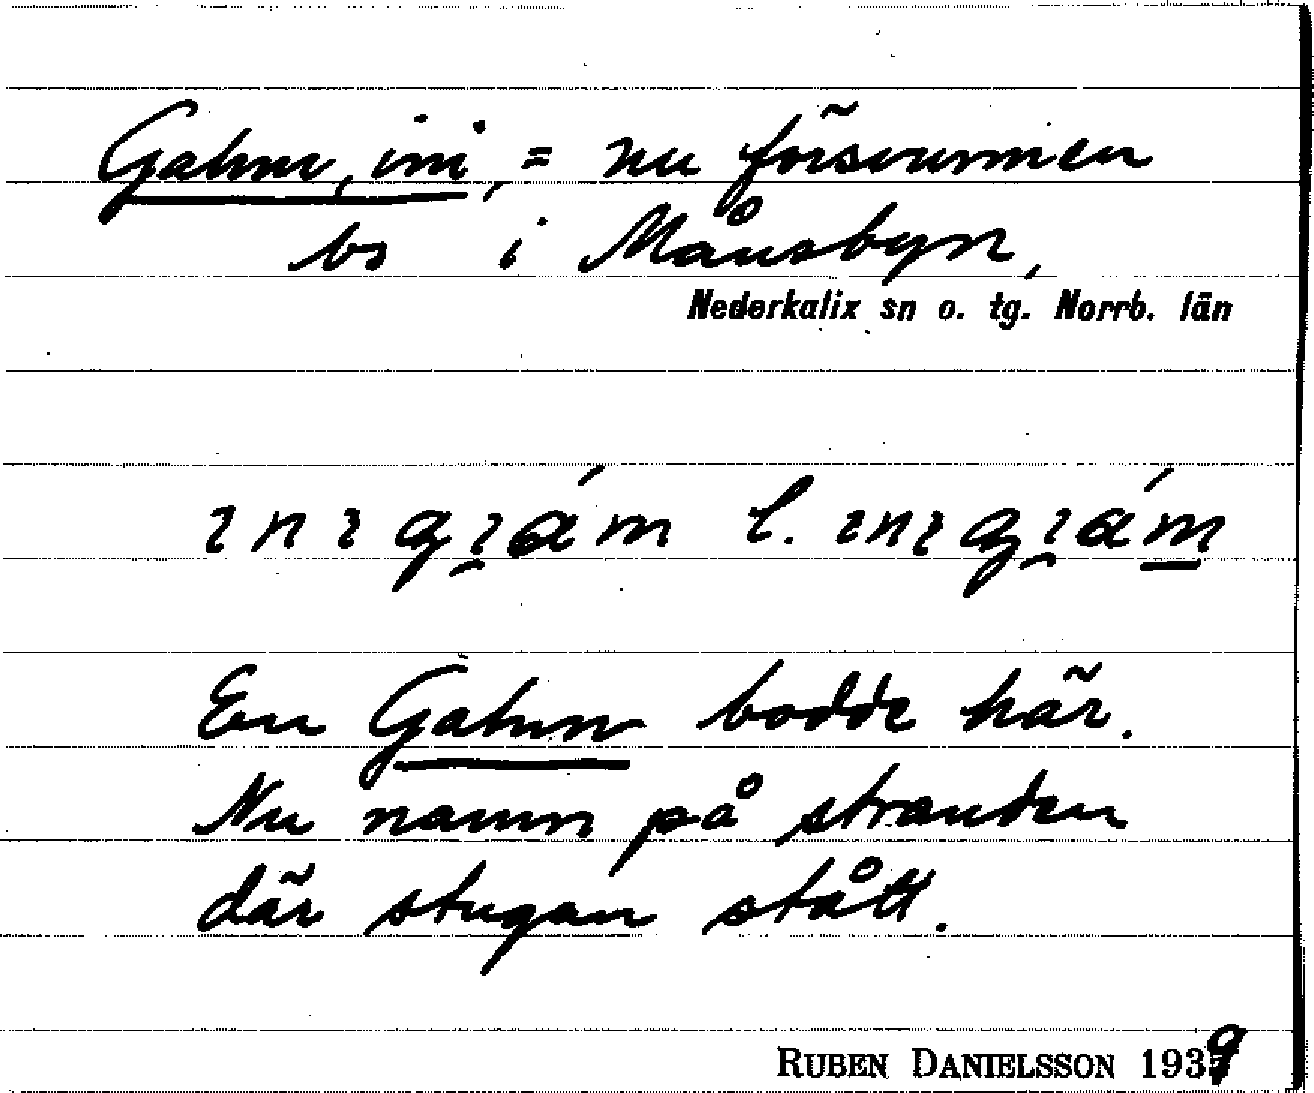 Gahm, ini, = nu försvunnen
bs i Månsbyn,
Nederkalix sn o. tg. Norrb. län
l.
En Gahm bodde här.
Nu namn på stranden
där stugan stått.
RUBEN DANIELSSON 1939